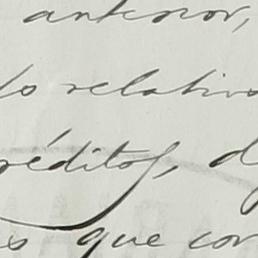 anterior,
lo relativo
réditos, d
s que cor